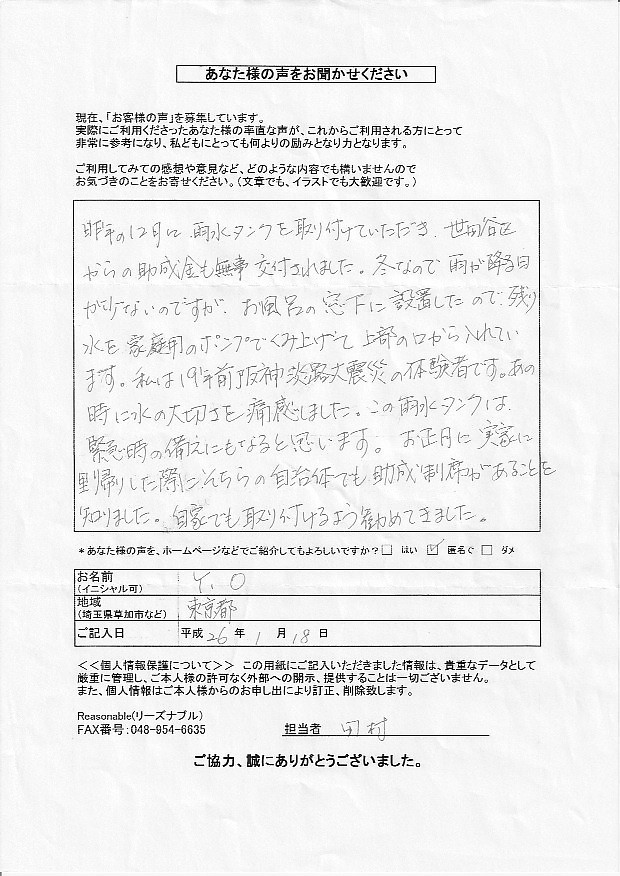 あなた様の声をお聞かせください
現在、「お客様の声」を募集しています。
実際にご利用くださったあなた様の率直な声が、これからご利用される方にとって
非常に参考になり、私どもにとっても何よりの励みとなり力となります。
ご利用してみての感想や意見など、どのような内容でも構いませんので
お気づきのことをお寄せください。（文章でも、イラストでも大歓迎です。）
昨年の12月に雨水タンクを取り付けていただき、世田谷区
からの助成金も無事交付されました。冬なので雨が降る日
が少ないのですが、お風呂の窓下に設置したので、残り
水を家庭用のポンプでくみ上げて上部の口から入れてい
ます。私は19年前阪神淡路大震災の体験者です。あの
時に水の大切さを痛感しました。この雨水タンクは、
緊急時の備えにもなると思います。お正月に実家に
里帰りした際にそちらの自治体でも助成制度があることを
知りました。自家でも取り付けるよう勧めてきました。
*あなた様の声を、ホームページなどでご紹介してもよろしいですか？□ はい ☑ 匿名で □ ダメ
お名前
(イニシャル可) Y. O
地域
(埼玉県草加市など) 東京都
ご記入日 平成 26 年 1 月 18 日
<<個人情報保護について>> この用紙にご記入いただきました情報は、貴重なデータとして
厳重に管理し、ご本人様の許可なく外部への開示、提供することは一切ございません。
また、個人情報はご本人様からのお申し出により訂正、削除致します。
Reasonable(リーズナブル)
FAX番号：048-954-6635 担当者 田村
ご協力、誠にありがとうございました。